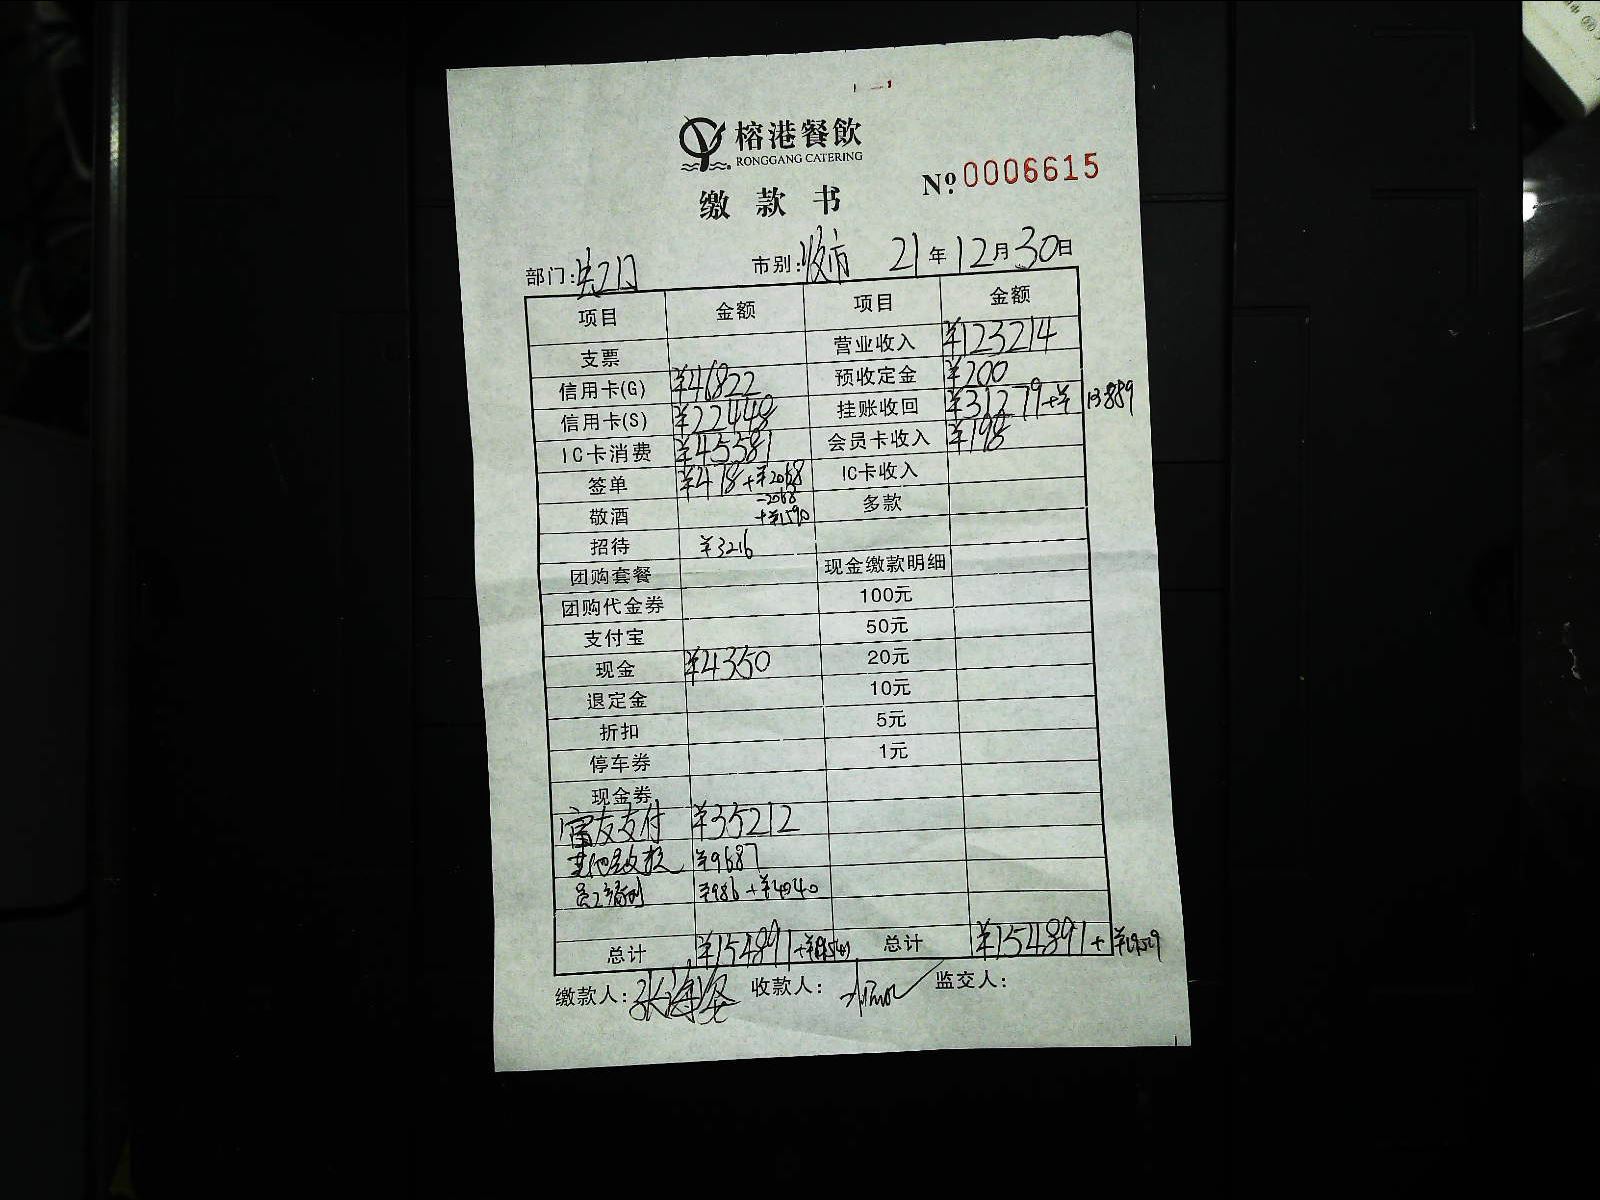 榕港餐飲
RONGGANG CATERING
缴款书
Nº 0006615
部门: 市别:收市 21年12月30日
项目 金额 项目 金额
支票 营业收入 ¥123214
信用卡(G) ¥46822 预收定金 ¥200
信用卡(S) ¥22448 挂账收回 ¥31279+¥13889
IC卡消费 ¥45581 会员卡收入 ¥198
签单 ¥418+¥2068 IC卡收入
-2068
敬酒 +¥1590 多款
招待 ¥3216
团购套餐 现金缴款明细
团购代金券 100元
支付宝 50元
现金 ¥4350 20元
退定金 10元
折扣 5元
停车券 1元
现金券
支付 ¥35212
¥9687
员工 ¥986+¥4040
总计 ¥154891+ 总计 ¥154891+
缴款人:张海 收款人: 监交人: